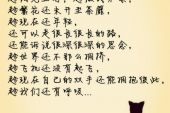 趁繁花还未开至荼蘼,
趁现在还年轻,
还可以走很长很长的路,
还能诉说很深很深的思念,
趁世界还不那么拥挤,
趁飞机还没有起飞,
趁现在自己的双手还能拥抱彼此,
趁我们还有呼吸...